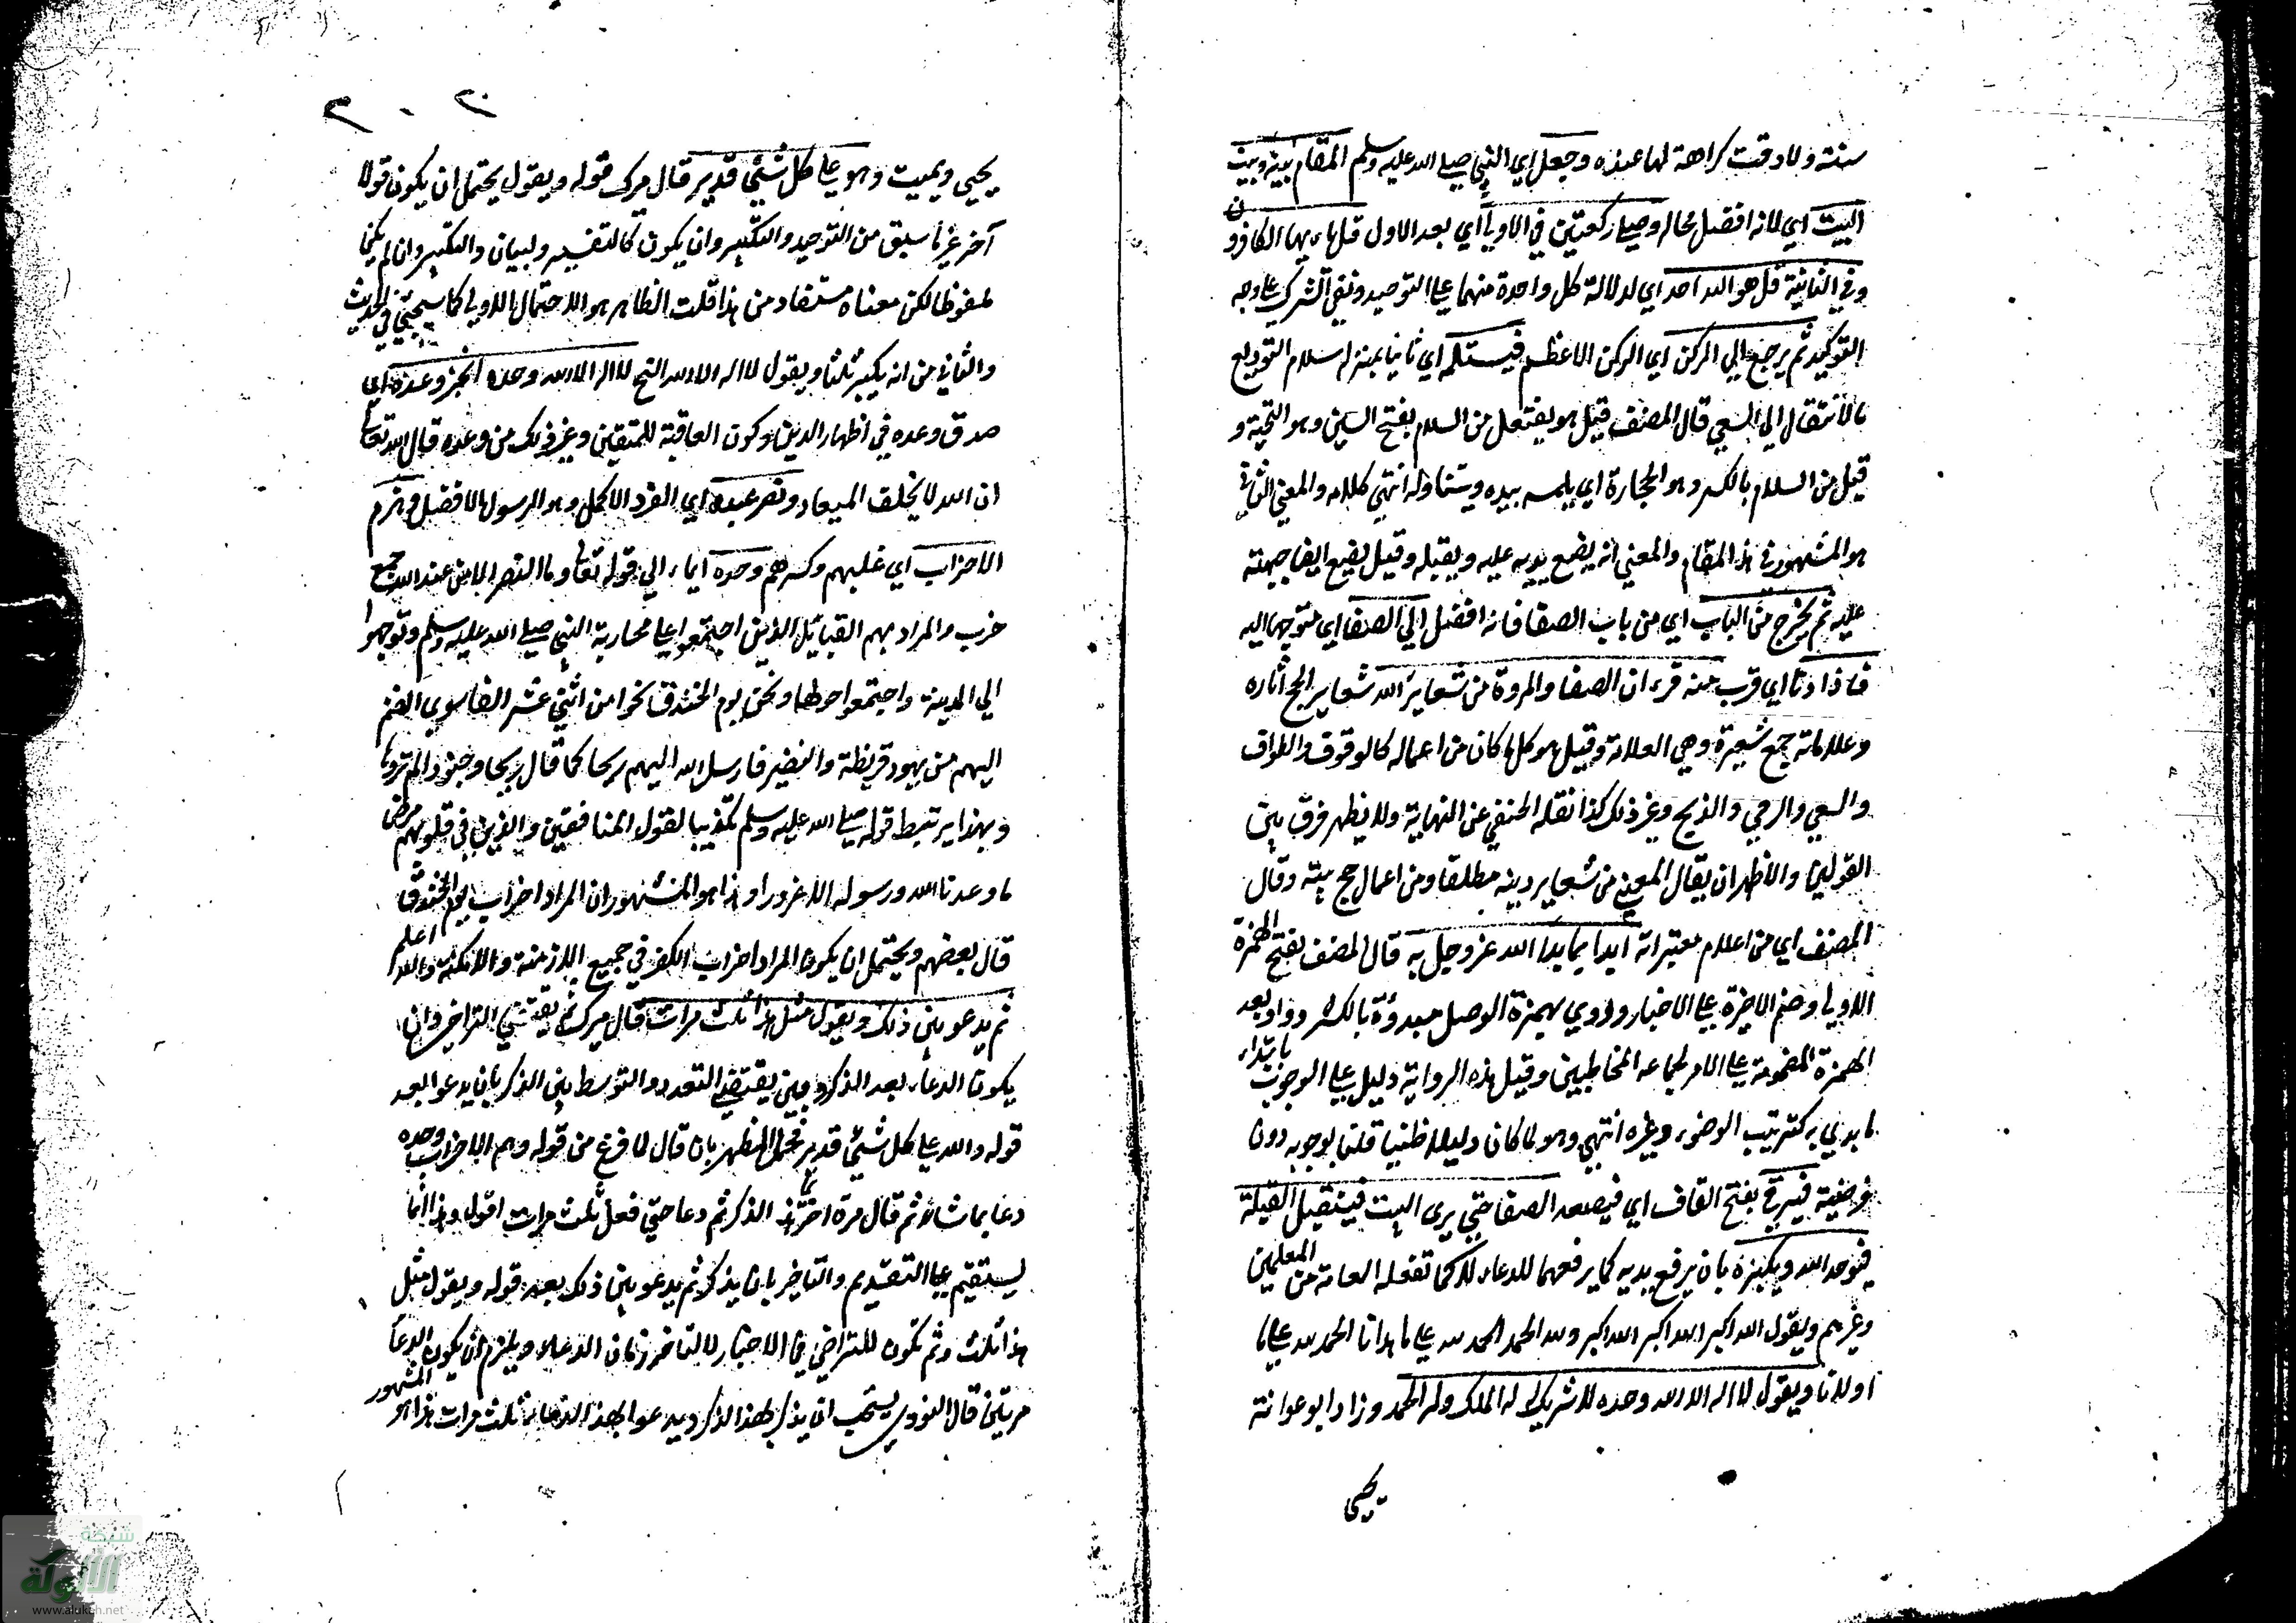 سنته ولا وقت كراهة لها عنده وجعل اي النبي صلي الله عليه وسلم المقام بينه وبين
البيت اي لانه افضل محاله وصلي ركعتين في الاولي اي بعد الاول قل يا ايها الكافرون
وفي الثانية قل هو الله احد اي لدلالة كل واحدة منهما علي التوحيد ونفي الشرك علي وجه
التوكيد ثم يرجع الي الركن اي الركن الاعظم فيستلمه اي ثانيا بمنزلة سلام التوديع
بالانتقال الي السعي قال المصنف قيل هو يفتعل من السلام بفتح السين وهو التحية و
قيل من السلام بالكسر وهو الحجارة اي يلمسه بيده ويتناوله انتهي كلامه والمعني الثاني
هو المشهور في هذا المقام والمعني انه يضع يديه عليه ويقبله وقيل يضع ايضا جبهته
عليه ثم يخرج من الباب اي من باب الصفا فانه افضل الي الصفا اي متوجها اليه
فاذا دنا اي قرب منه قرء ان الصفا والمروة من شعاير الله شعاير الحج آثاره
وعلاماته جمع شعيرة وهي العلامة وقيل هو كل ما كان من اعماله كالوقوف والطواف
والسعي والرمي والذبح وغير ذلك كذا نقله الحنفي عن النهاية ولا يظهر فرق بين
القولين والاظهر ان يقال المعني من شعاير دينه مطلقا ومن اعمال حج بيته وقال
المصنف اي من اعلام متعبداته ابدا بما بدا الله عز وجل به قال المصنف بفتح الهمزة
الاولي وضم الاخيرة علي الاخبار وروي بهمزة الوصل مبدوءة بالكسر وواو بعد
الهمزة المضمومة علي الامر لجماعة المخاطبين وقيل هذه الرواية دليل علي الوجوب بابتداء
ما بدئ به كترتيب الوضوء وغيره انتهي وهو لما كان دليلا ظنيا قلنا بوجوبه دون
فرضيته فيرقي بفتح القاف اي فيصعد الصفا حتي يري البيت فيستقبل القبلة
فيوحد الله ويكبره بان يرفع يديه كما يرفعهما للدعاء لا كما تفعله العامة من المعلمين
وغيرهم ويقول الله اكبر الله اكبر الله اكبر ولله الحمد الحمد لله علي ما هدانا الحمد لله علي ما
اولانا ويقول لا اله الا الله وحده لا شريك له له الملك وله الحمد وزاد ابو عوانة
يحيي
يحيي ويميت وهو علي كل شئ قدير قال ميرك قوله ويقول يحتمل ان يكون قولا
آخر غير ما سبق من التوحيد والتكبير وان يكون كالتفسير ولبيان والتكبير وان لم يكن
ملفوظا لكن معناه مستفاد من هذا قلت الظاهر هو الاحتمال الاولي كما سيجئ في الحديث
والثاني من انه يكبر ثلثا ويقول لا اله الا الله الخ لا اله الا الله وحده انجز وعده اي
صدق وعده في اظهار الدين وكون العاقبة للمتقين وغير ذلك من وعده قال الله تعالي
ان الله لا يخلف الميعاد ونصر عبده اي الفرد الاكمل وهو الرسول الافضل وهزم
الاحزاب اي غلبهم وكسرهم وحده ايماء الي قوله تعالي وما النصر الا من عند الله جمع
حزب والمراد بهم القبائل الذين اجتمعوا علي محاربة النبي صلي الله عليه وسلم وتوجهوا
الي المدينة واجتمعوا حولها ونحن يوم الخندق نحوا من اثني عشر الفا سوي انضم
اليهم من يهود قريظة والنضير فارسل الله اليهم ريحا كما قال ريحا وجنودا لم تروها
وبهذا يرتبط قوله صلي الله عليه وسلم تكذيبا لقول المنافقين والذين في قلوبهم مرض
ما وعدنا الله ورسوله الا غرورا وهذا هو المشهور ان المراد احزاب يوم الخندق
قال بعضهم ويحتمل ان يكون المراد احزاب الكفر في جميع الازمنة والامكنة والله اعلم
ثم يدعو بين ذلك ويقول مثل هذا ثلث مرات قال ميرك ثم يقتضي التراخي وان
يكون الدعاء بعد الذكر وبين يقتضي التعدد والتوسط بين الذكر بان يدعو بعد
قوله والله علي كل شئ قدير فحمل المظهر بان قال لما فرغ من قوله وهم الاحزاب وحده
دعا بما شاء ثم قال مرة اخري هذا الذكر ثم دعا حتي فعل ثلث مرات اقول وهذا انما
يستقيم علي التقديم والتاخير بان يذكر ثم يدعو بين ذلك بعد قوله ويقول مثل
هذا ثلث وثم تكون للتراخي في الاخبار لا التاخر زمان الدعاء ويلزم ان يكون الدعا
مرتين قال النووي يستحب ان يذكر بهذا الذكر ويدعو بهذا الدعاء ثلث مرات هذا هو المشهور
شبكة
الألوكة
www.alukah.net